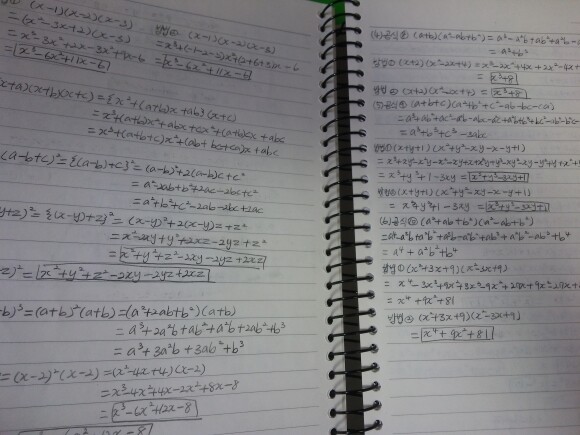 방법① (x-1)(x-2)(x-3)
=(x²-3x+2)(x-3)
=x³-3x²+2x-3x²+9x-6
=x³-6x²+11x-6
방법② (x-1)(x-2)(x-3)
=x³-6x²+11x-6
(x+a)(x+b)(x+c)={x²+(a+b)x+ab}(x+c)
=x³+(a+b)x²+abx+cx²+(a+b)cx+abc
=x³+(a+b+c)x²+(ab+bc+ca)x+abc
(a-b+c)²={(a-b)+c}²=(a-b)²+2(a-b)c+c²
=a²-2ab+b²+2ac-2bc+c²
=a²+b²+c²-2ab-2bc+2ac
y+z)²={(x-y)+z}²=(x-y)²+2(x-y)z+z²
=x²-2xy+y²+2xz-2yz+z²
=x²+y²+z²-2xy-2yz+2xz
z)²=x²+y²+z²-2xy-2yz+2xz
b)³=(a+b)²(a+b)=(a²+2ab+b²)(a+b)
=a³+2a²b+ab²+a²b+2ab²+b³
=a³+3a²b+3ab²+b³
=(x-2)²(x-2)=(x²-4x+4)(x-2)
=x³-4x²+4x-2x²+8x-8
=x³-6x²+12x-8
(4)공식 (a+b)(a²-ab+b²)=a³-a²b+ab²+a²b-
=a³+b³
방법① (x+2)(x²-2x+4)=x³-2x²+4x+2x²-4x+
=x³+8
방법② (x+2)(x²-2x+4)=x³+8
(5)공식 (a+b+c)(a²+b²+c²-ab-bc-ca)
=a³+b³+c³-3abc
방법① (x+y+1)(x²+y²-xy-x-y+1)
=x³+y³+1-3xy=x³+y³-3xy+1
방법② (x+y+1)(x²+y²-xy-x-y+1)
=x³+y³+1-3xy=x³+y³-3xy+1
(6)공식 (a²+ab+b²)(a²-ab+b²)
=a⁴-a³b+a²b²+a³b-a²b²+ab³+a²b²-ab³+b⁴
=a⁴+a²b²+b⁴
방법① (x²+3x+9)(x²-3x+9)
=x⁴-3x³+9x²+3x³-9x²+27x+9x²-27x+
=x⁴+9x²+81
방법② (x²+3x+9)(x²-3x+9)
=x⁴+9x²+81